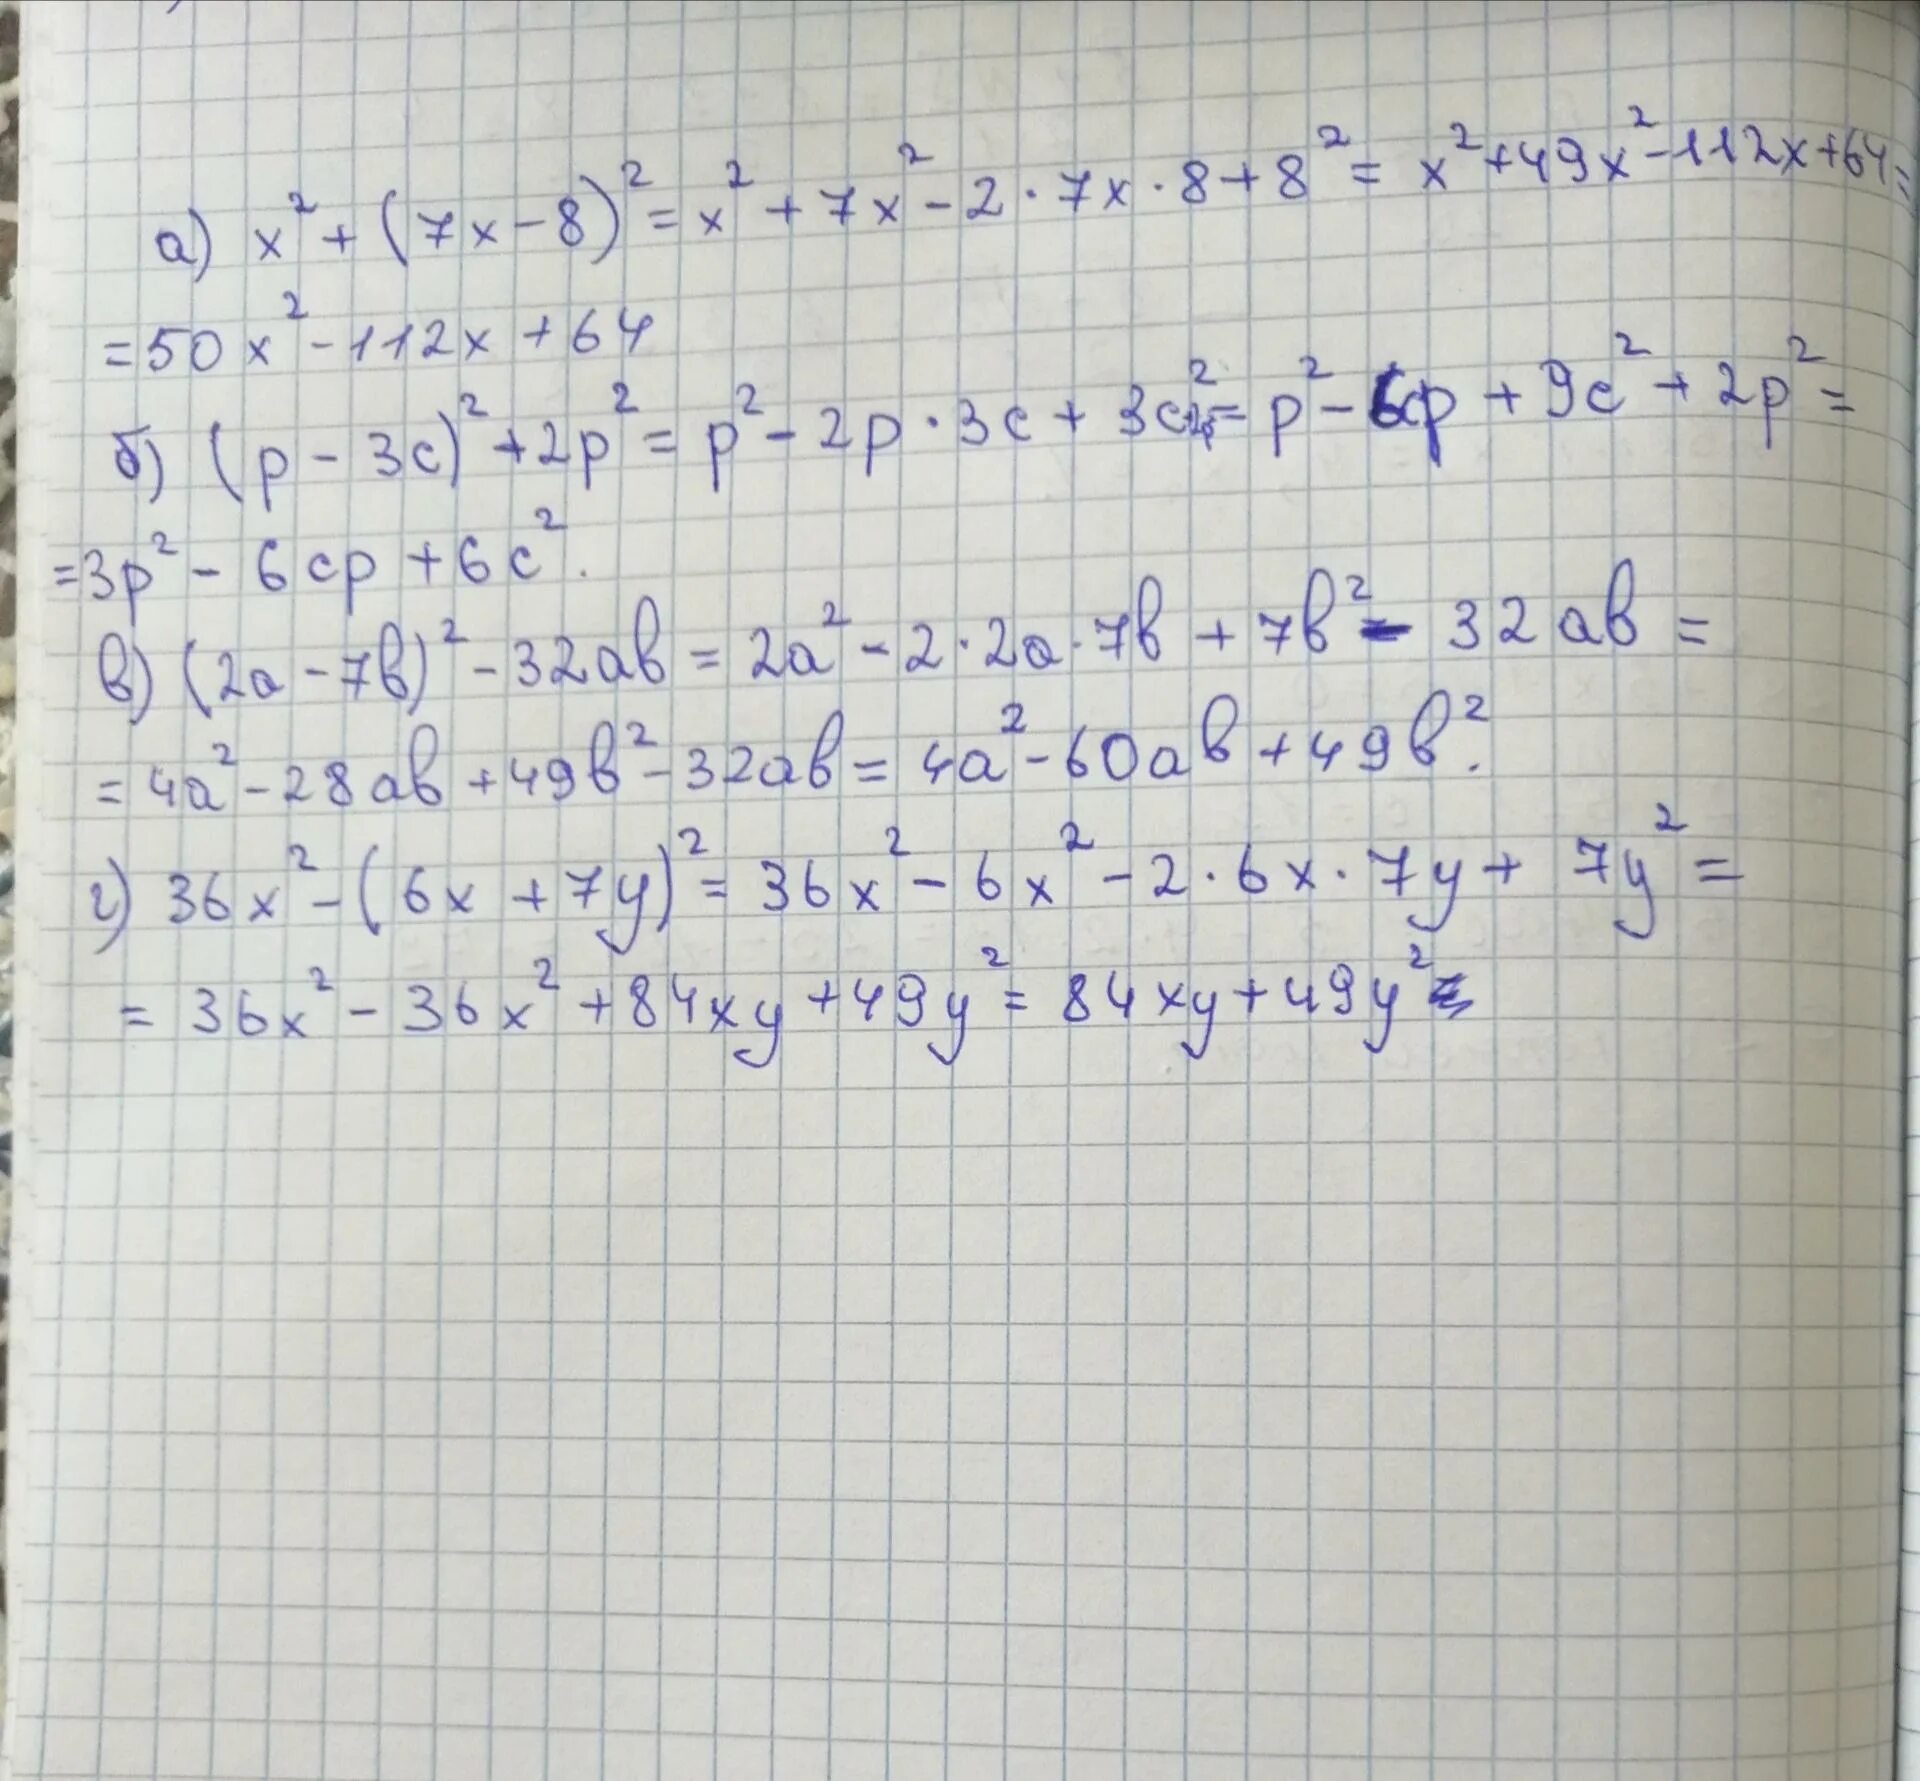 а) x² + (7x - 8)² = x² + 7x² - 2 · 7x · 8 + 8² = x² + 49x² - 112x + 64 =
= 50x² - 112x + 64
б) (p - 3c)² + 2p² = p² - 2p · 3c + 3c² = p² - 6cp + 9c² + 2p² =
= 3p² - 6cp + 6c².
в) (2a - 7b)² - 32ab = 2a² - 2 · 2a · 7b + 7b² - 32ab =
= 4a² - 28ab + 49b² - 32ab = 4a² - 60ab + 49b².
г) 36x² - (6x + 7y)² = 36x² - 6x² - 2 · 6x · 7y + 7y² =
= 36x² - 36x² + 84xy + 49y² = 84xy + 49y²